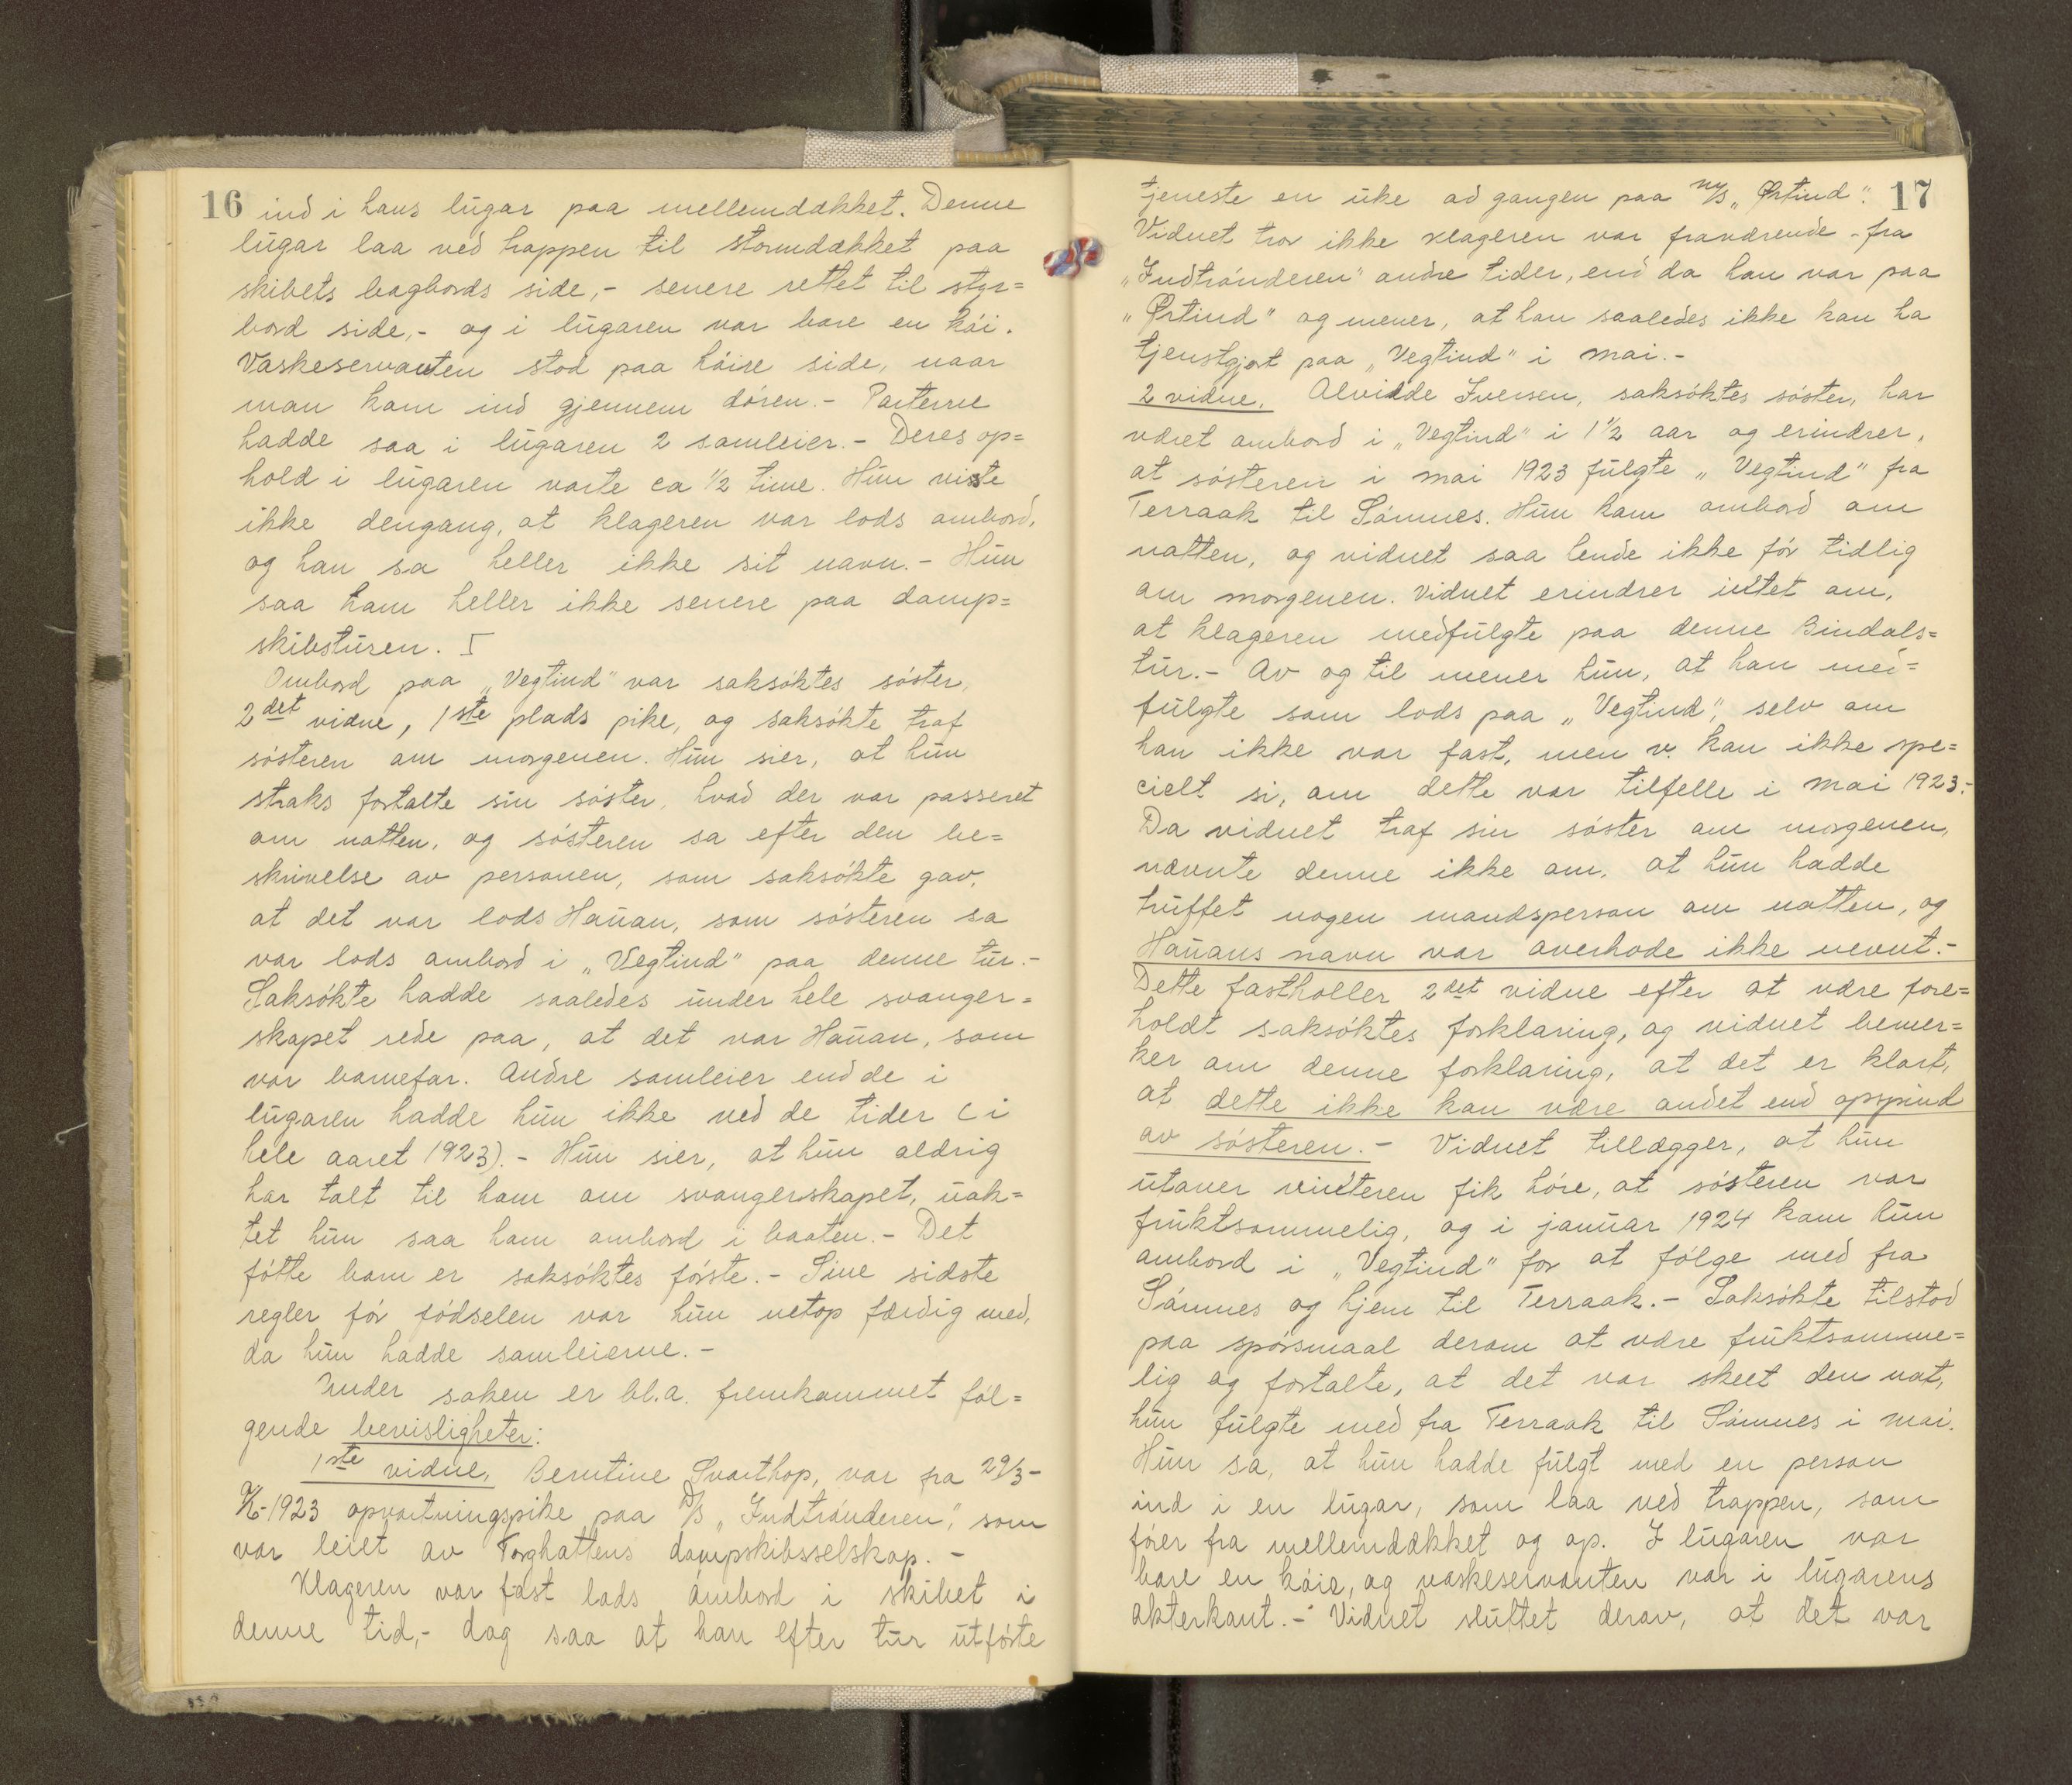 16 ind i hans lugar paa mellemdækket. Denne
lugar laa ved trappen til stormdækket paa
skibets bagbords side,- senere rettet til styr=
bord side,- og i lugaren var bare en køi.
Vaskeservanten stod paa høire side, naar
man kom ind gjennem døren.- Parterne
hadde saa i lugaren 2 samleier.- Deres op=
hold i lugaren varte ca ½ time. Hun visste
ikke dengang, at klageren var lods ombord,
og han sa heller ikke sit navn.- Hun
saa ham heller ikke senere paa damp=
skibsturen.
Ombord paa „Vegtind" var saksøktes søster,
2det vidne, 1ste plads pike, og saksøkte traf
søsteren om morgenen. Hun sier, at hun
straks fortalte sin søster, hvad der var passeret
om natten, og søsteren sa efter den be=
skrivelse av personen, som saksøkte gav,
at det var lods Hauan, som søsteren sa
var lods ombord i „Vegtind" paa denne tur.-
Saksøkte hadde saaledes under hele svanger=
skapet rede paa, at det var Hauan, som
var barnefar. Andre samleier end de i
lugaren hadde hun ikke ved de tider (i
hele aaret 1923).- Hun sier, at hun aldrig
har talt til ham om svangerskapet, uak=
tet hun saa ham ombord i baaten.- Det
føtte barn er saksøktes første.- Sine sidste
regler før fødselen var hun netop færdig med,
da hun hadde samleierne.-
Under saken er bl.a. fremkommet føl=
gende bevisligheter:
1ste vidne, Berntine Svarthop, var fra 29/3-
-1923 opvartningspike paa D/S „Indtrønderen", som
var leiet av Torghattens dampskibsselskap.-
Klageren var fast lods ombord i skibet i
denne tid,- dog saa at han efter tur utførte
17
tjeneste en uke ad gangen paa M/S „Ørtind".
Vidnet tror ikke klageren var fraværende fra
„Indtrønderen" andre tider, end da han var paa
„Ørtind" og mener, at han saaledes ikke kan ha
tjenstgjort paa „Vegtind" i mai.-
2 vidne, Alvidde Iversen, saksøktes søster, har
været ombord i „Vegtind" i 1½ aar og erindrer,
at søsteren i mai 1923 fulgte „Vegtind" fra
Terraak til Sømnes. Hun kom ombord om
natten, og vidnet saa hende ikke før tidlig
om morgenen. Vidnet erindrer intet om,
at klageren medfulgte paa denne Bindals=
tur.- Av og til mener hun, at han med=
fulgte som lods paa „Vegtind", selv om
han ikke var fast, men v. kan ikke spe=
cielt si, om dette var tilfelle i mai 1923.-
Da vidnet traf sin søster om morgenen,
nævnte denne ikke om, at hun hadde
truffet nogen mandsperson om natten, og
Hauans navn var overhode ikke nevnt.-
Dette fastholler 2det vidne efter at være fore=
holdt saksøktes forklaring, og vidnet bemer=
ker om denne forklaring, at det er klart,
at dette ikke kan være andet end opspind
av søsteren.- Vidnet tillægger, at hun
utover vinteren fik høre, at søsteren var
fruktsommelig, og i januar 1924 kom hun
ombord i „Vegtind" for at følge med fra
Sømnes og hjem til Terraak.- Saksøkte tilstod
paa spørsmaal derom at være fruktsomme=
lig og fortalte, at det var skeet den nat,
hun fulgte med fra Terraak til Sømnes i mai.
Hun sa, at hun hadde fulgt med en person
ind i en lugar, som laa ved trappen, som
fører fra mellemdækket og op. I lugaren var
bare en køie, og vaskeservanten var i lugarens
akterkant.- Vidnet sluttet derav, at det var